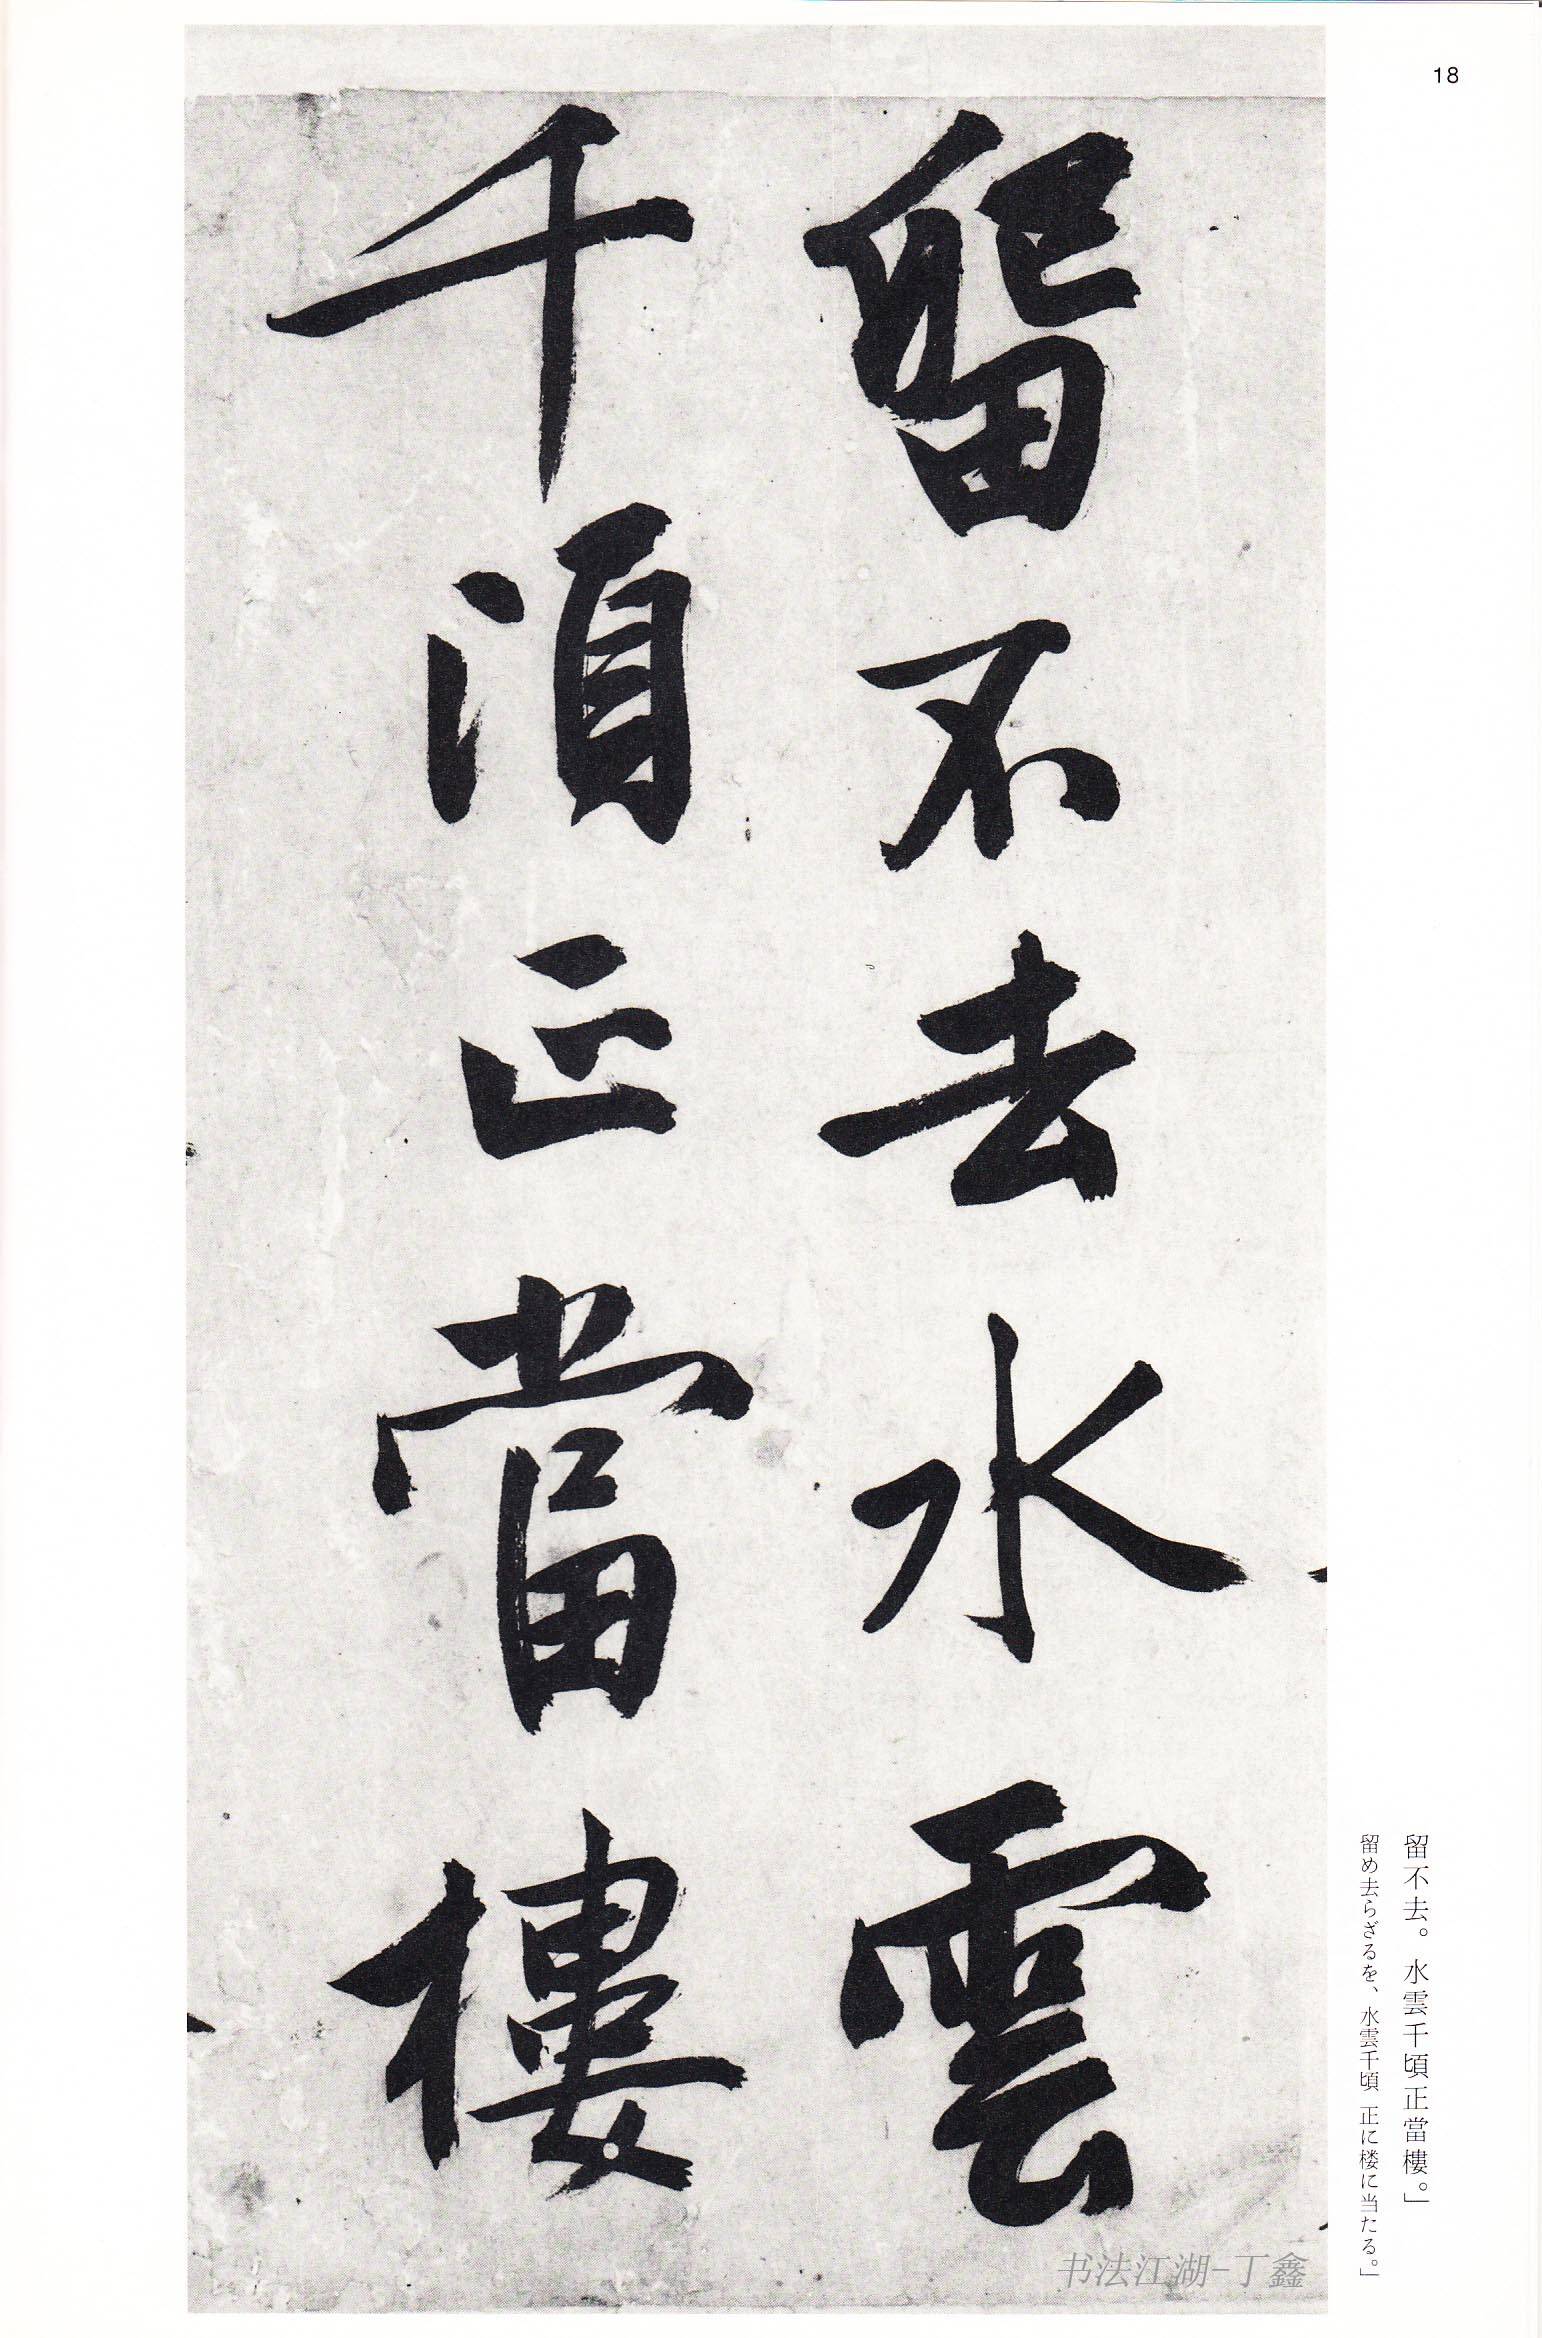 18
留不去水雲
千頃正當樓
留不去。水雲千頃正當樓。」
留め去らざるを、水雲千頃 正に楼に当たる。」
书法江湖-丁鑫